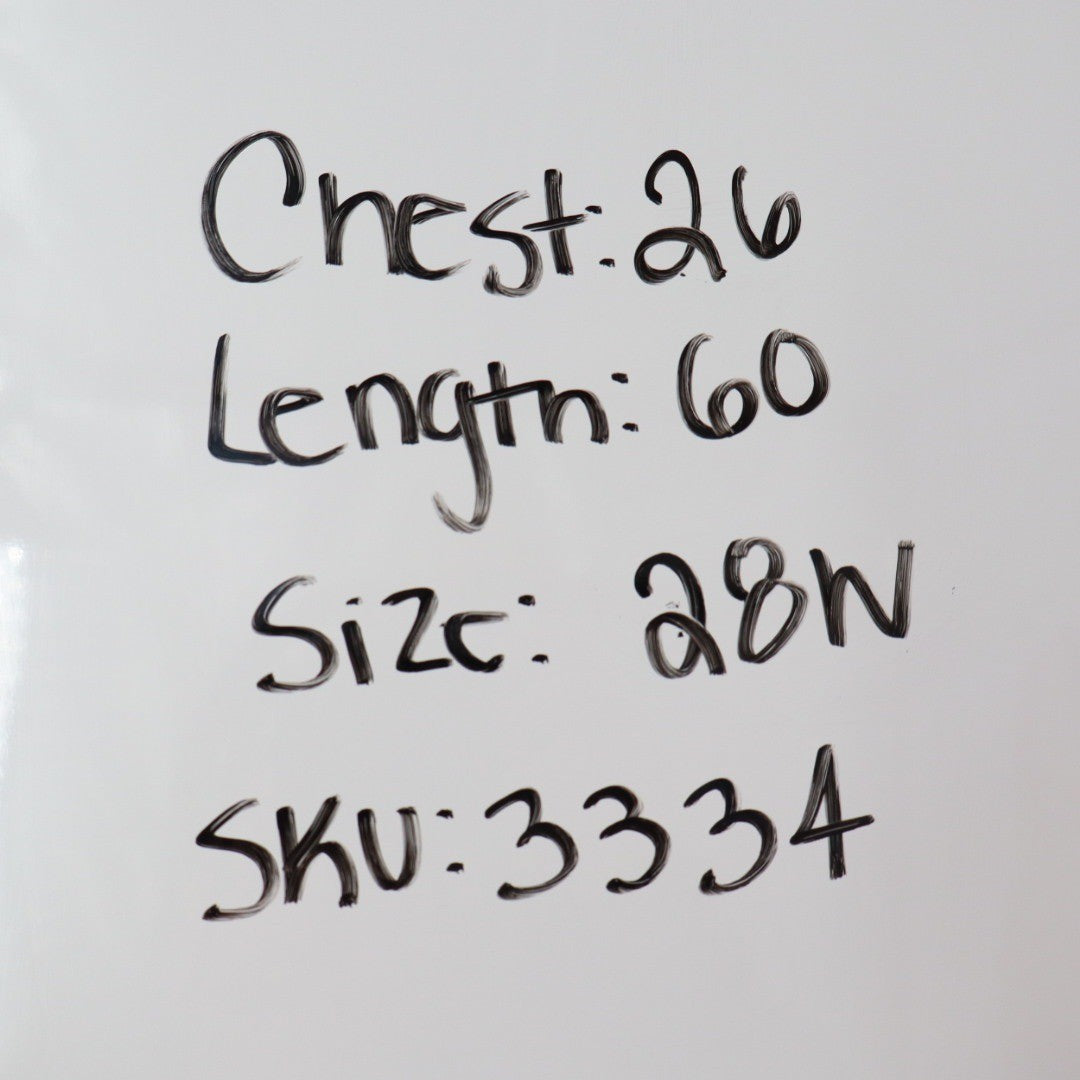 Chest: 26
Length: 60
Size: 28W
SKU: 3334